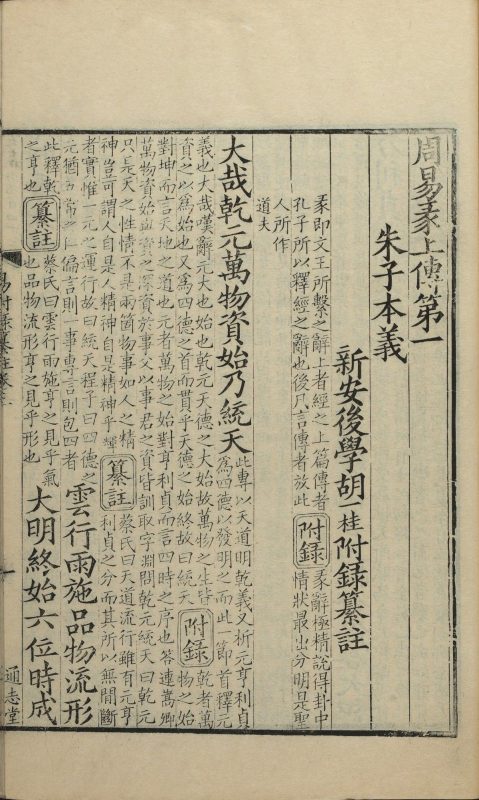 周易彖上傳第一
朱子本義
新安後學胡一桂附錄纂註
彖即文王所繫之辭上者經之上篇傳者
孔子所以釋經之辭也後凡言傳者放此
附錄
彖辭極精說得卦中
情狀最出分明是聖
人所作
道夫
大哉乾元萬物資始乃統天
此專以天道明乾義又析元亨利貞
為四德以發明之而此一節首釋元
義也大哉嘆辭元大也始也乾元天德之大始故萬物之生皆
資之以為始也又為四德之首而貫乎天德之始終故曰統天
附錄
乾者萬
物之始
對坤而言天地之道也元者萬物之始對亨利貞而言四時之序也答連嵩卿
萬物資始與資之深資於事父以事君之資皆訓取字淵問乾元統天曰乾元
只是天之性情不是兩箇物事如人之精
神豈可謂人自是人精神自是精神乎煇
纂註
蔡氏曰天道流行雖有元亨
利貞之分而其所以無間斷
者實惟一元之運行故曰統天程子曰四德之
元猶五常之仁偏言則一事專言則包四者
雲行雨施品物流形
此釋乾
之亨也
纂註
蔡氏曰雲行雨施亨之見乎氣
也品物流形亨之見乎形也
大明終始六位時成
易附錄纂註卷
一
通志堂